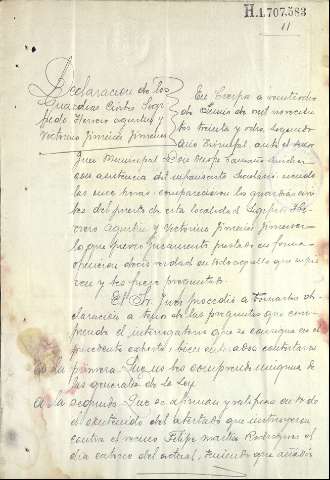 H.1.707.583
11
Declaración de los
Guardias Civiles
Herrero Agustin y
Victorino Jimenez Jimenez
En Cuerpo a veinticinco
de Junio de mil novecien
tos treinta y ocho, Segundo
Año Triunfal, ante el Señor
Juez Municipal Don
con asistencia del infrascrito Secretario, siendo
las once horas comparecieron los guardias civi
les del puesto de esta localidad He
rrero Agustin y Victorino Jimenez Jimenez
los que previo juramento prestado en forma
ofrecieron decir verdad en todo aquello que supie
ren y les fuese preguntado.
El Sr. Juez procedió a tomarles de
claración a tenor de las preguntas que com
prende el interrogatorio que se consigna en el
precedente exhorto; y bien enterados contestaron
A la primera. Que no les comprende ninguna de
las generales de la Ley
A la segunda. Que se afirman y ratifican en todo
el contenido del atestado que instruyeron
contra el vecino Felipe Martin Rodriguez el
dia catorce del actual, teniendo que añadir